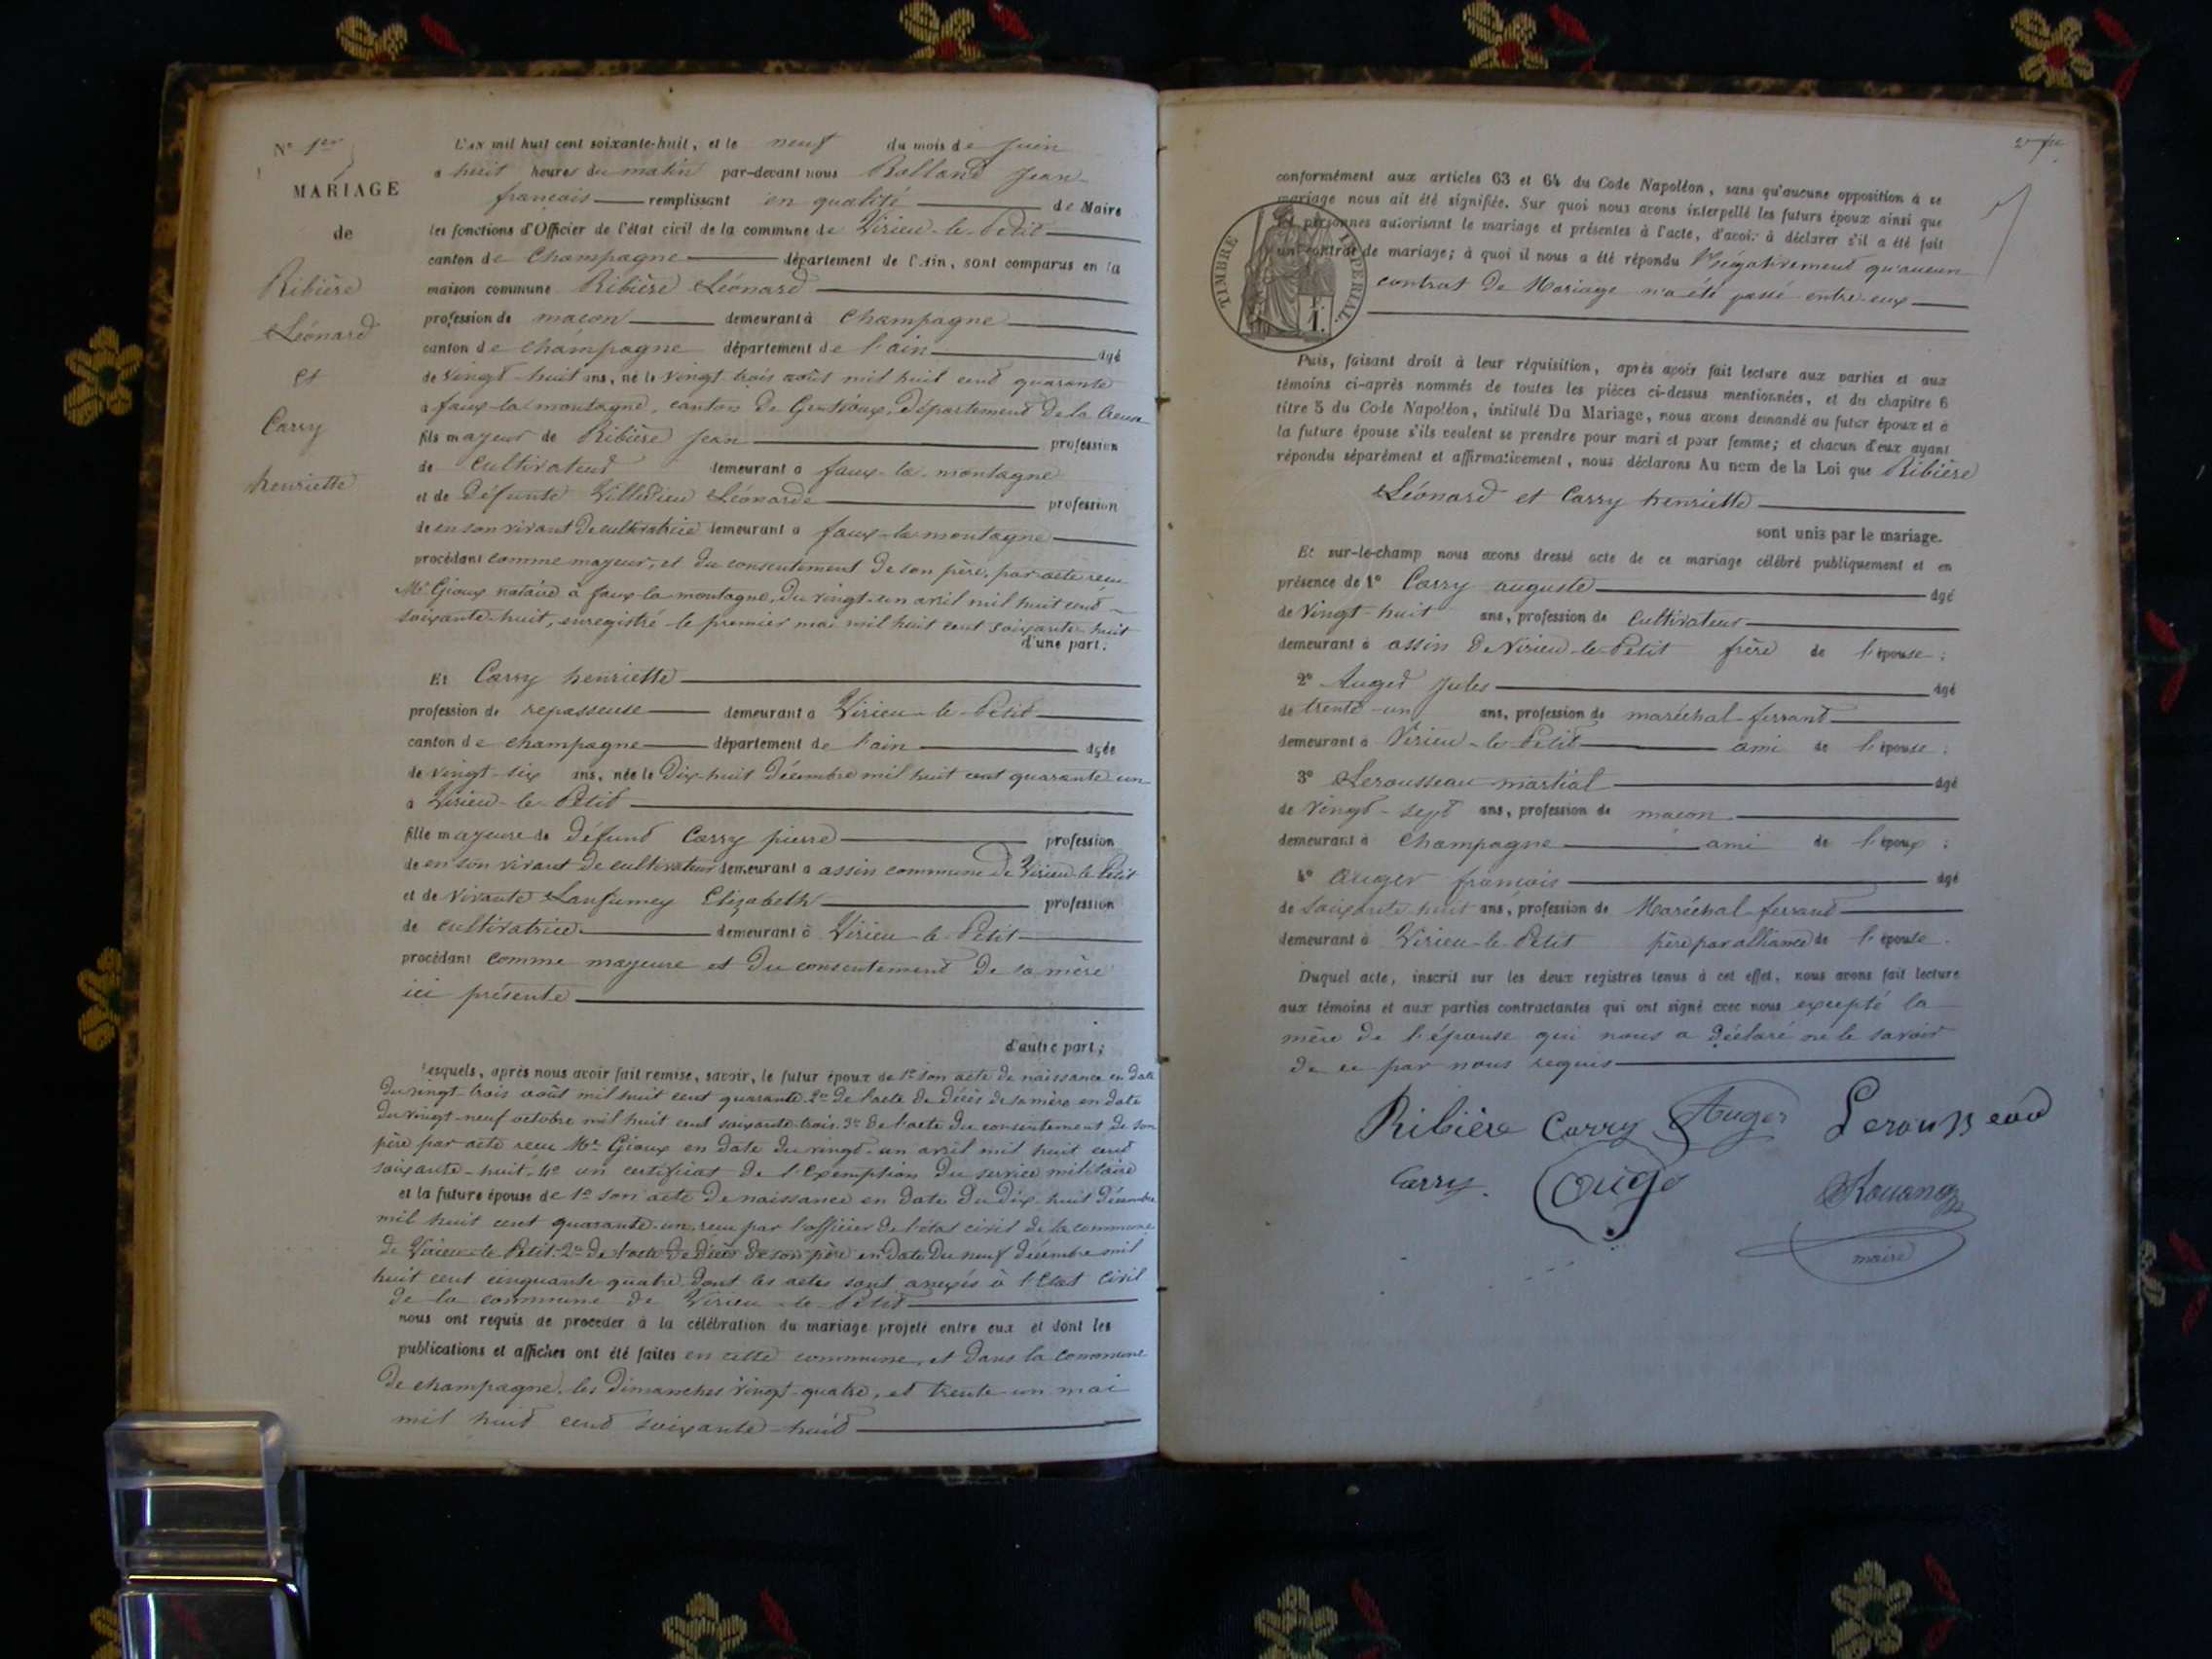 N° 1er
MARIAGE
de
Ribière
Léonard
et
Carry
henriette
L'an mil huit cent soixante-huit, et le neuf du mois de juin
à huit heures du matin par-devant nous Rolland jean
francois remplissant en qualité de Maire
les fonctions d'Officier de l'état civil de la commune de Virieu-le-Petit
canton de Champagne département de l'Ain, sont comparus en la
maison commune Ribière Léonard
profession de maçon demeurant à Champagne
canton de champagne département de l'ain âgé
de vingt-huit ans, né le vingt-trois août mil huit cent quarante
à faux-la montagne, canton de Gentioux, département de la Creuse
fils majeur de Ribière jean profession
de cultivateur demeurant à faux-la-montagne
et de défunte Villedieu Léonarde profession
de en son vivant de cultivatrice demeurant à faux-la-montagne
procédant comme majeur, et du consentement de son père, par acte reçu
Me Gioux notaire à faux-la-montagne, du vingt-un avril mil huit cent
soixante-huit, enregistré le premier mai mil huit cent soixante-huit
d'une part;
Et Carry henriette
profession de repasseuse demeurant à Virieu-le-Petit
canton de champagne département de l'ain âgée
de vingt-six ans, née le dix-huit décembre mil huit cent quarante-un
à Virieu-le-Petit
fille majeure de défunt Carry pierre profession
de en son vivant de cultivateur demeurant à assin commune de Virieu-le-Petit
et de vivante Lanfumey Elizabeth profession
de cultivatrice demeurant à Virieu-le-Petit
procédant comme majeure et du consentement de sa mère
ici présente
d'autre part;
Lesquels, après nous avoir fait remise, savoir, le futur époux de 1° son acte de naissance en date
du vingt-trois août mil huit cent quarante. 2° de l'acte de décès de sa mère en date
du vingt-neuf octobre mil huit cent soixante-trois. 3° de l'acte du consentement de son
père par acte reçu Me Gioux en date du vingt-un avril mil huit cent
soixante-huit. 4° un certificat de l'exemption du service militaire
et la future épouse de 1° son acte de naissance en date du dix-huit décembre
mil huit cent quarante-un, reçu par l'officier de l'état civil de la commune
de Virieu-le-Petit. 2° de l'acte de décès de son père en date du neuf décembre mil
huit cent cinquante-quatre, dont les actes sont anexés à l'Etat Civil
de la commune de Virieu-le-Petit
nous ont requis de procéder à la célébration du mariage projeté entre eux et dont les
publications et affiches ont été faites en cette commune, et dans la commune
de champagne, les dimanches vingt-quatre, et trente-un mai
mil huit cent soixante-huit
conformément aux articles 63 et 64 du Code Napoléon, sans qu'aucune opposition à ce
mariage nous ait été signifiée. Sur quoi nous avons interpellé les futurs époux ainsi que
personnes autorisant le mariage et présentes à l'acte, d'avoir à déclarer s'il a été fait
un contrat de mariage; à quoi il nous a été répondu Négativement qu'aucun
contrat de Mariage n'a été passé entre eux
TIMBRE IMPERIAL
1 F.
Puis, faisant droit à leur réquisition, après avoir fait lecture aux parties et aux
témoins ci-après nommés de toutes les pièces ci-dessus mentionnées, et du chapitre 6
titre 5 du Code Napoléon, intitulé Du Mariage, nous avons demandé au futur époux et à
la future épouse s'ils veulent se prendre pour mari et pour femme; et chacun d'eux ayant
répondu séparément et affirmativement, nous déclarons Au nom de la Loi que Ribière
Léonard et Carry henriette
sont unis par le mariage.
Et sur-le-champ nous avons dressé acte de ce mariage célébré publiquement et en
présence de 1° Carry auguste âgé
de vingt-huit ans, profession de cultivateur
demeurant à assin de Virieu-le-Petit frère de l'épouse;
2° Auger jules âgé
de trente-un ans, profession de maréchal-ferrant
demeurant à Virieu-le-Petit ami de l'épouse;
3° Lerousseau martial âgé
de vingt-sept ans, profession de maçon
demeurant à Champagne ami de l'époux;
4° Auger francois âgé
de soixante-huit ans, profession de Maréchal-ferrant
demeurant à Virieu-le-Petit père par alliance de l'épouse.
Duquel acte, inscrit sur les deux registres tenus à cet effet, nous avons fait lecture
aux témoins et aux parties contractantes qui ont signé avec nous excepté la
mère de l'épouse qui nous a déclaré ne le savoir
de ce par nous requis
Ribière Carry Auger Lerousseau
Carry
maire